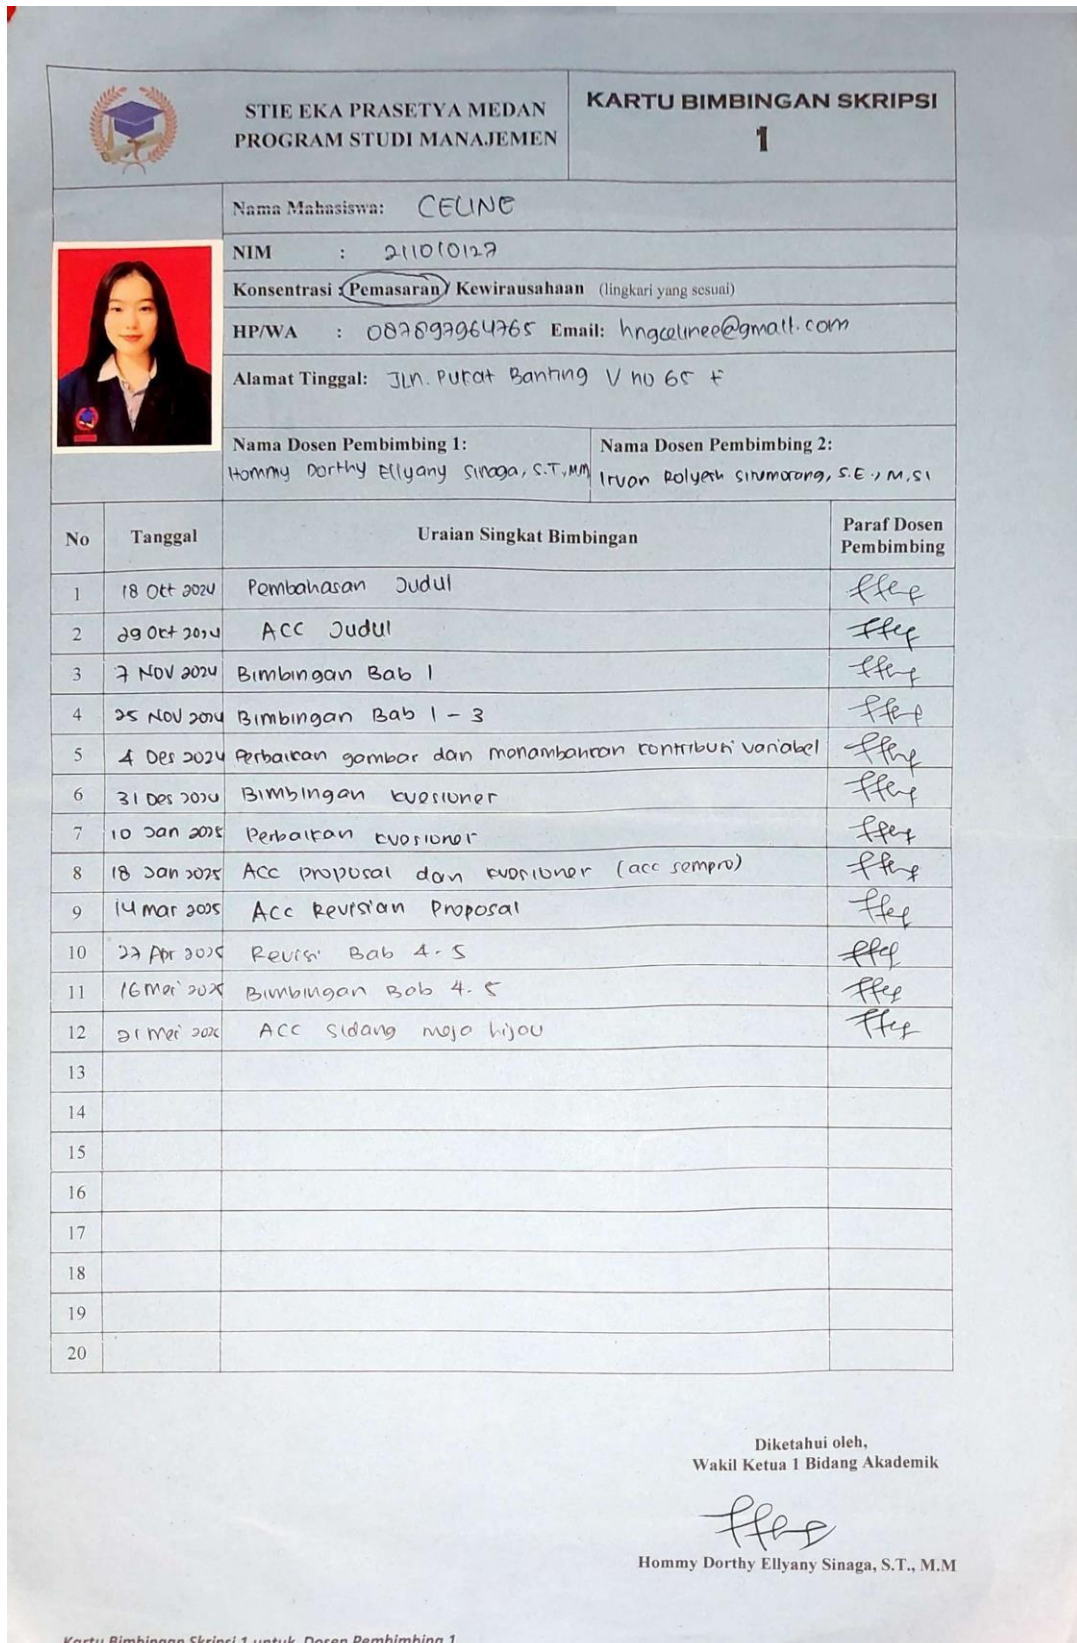 STIE EKA PRASETYA MEDAN
PROGRAM STUDI MANAJEMEN
KARTU BIMBINGAN SKRIPSI
1
Nama Mahasiswa: CELINE
NIM : 211010127
Konsentrasi : Pemasaran / Kewirausahaan (lingkari yang sesuai)
HP/WA : 087897964765 Email: hngcelinee@gmail.com
Alamat Tinggal: Jln. Purat Banting V no 65 F
Nama Dosen Pembimbing 1:
Hommy Dorthy Ellyany Sinaga, S.T, MM
Nama Dosen Pembimbing 2:
Irvan Rolyesh Situmorang, S.E., M.Si
No Tanggal Uraian Singkat Bimbingan Paraf Dosen Pembimbing
1 18 Okt 2024 Pembahasan Judul
2 29 Okt 2024 ACC Judul
3 7 Nov 2024 Bimbingan Bab 1
4 25 Nov 2024 Bimbingan Bab 1 - 3
5 4 Des 2024 Perbaikan gambar dan menambahkan kontribusi variabel
6 31 Des 2024 Bimbingan kuesioner
7 10 Jan 2025 Perbaikan kuesioner
8 18 Jan 2025 Acc proposal dan kuesioner (acc sempro)
9 14 Mar 2025 Acc Revisian Proposal
10 27 Apr 2025 Revisi Bab 4-5
11 16 Mei 2025 Bimbingan Bab 4-5
12 21 Mei 2025 ACC Sidang meja hijau
13
14
15
16
17
18
19
20
Diketahui oleh,
Wakil Ketua 1 Bidang Akademik
Hommy Dorthy Ellyany Sinaga, S.T., M.M
Kartu Bimbingan Skripsi 1 untuk Dosen Pembimbing 1